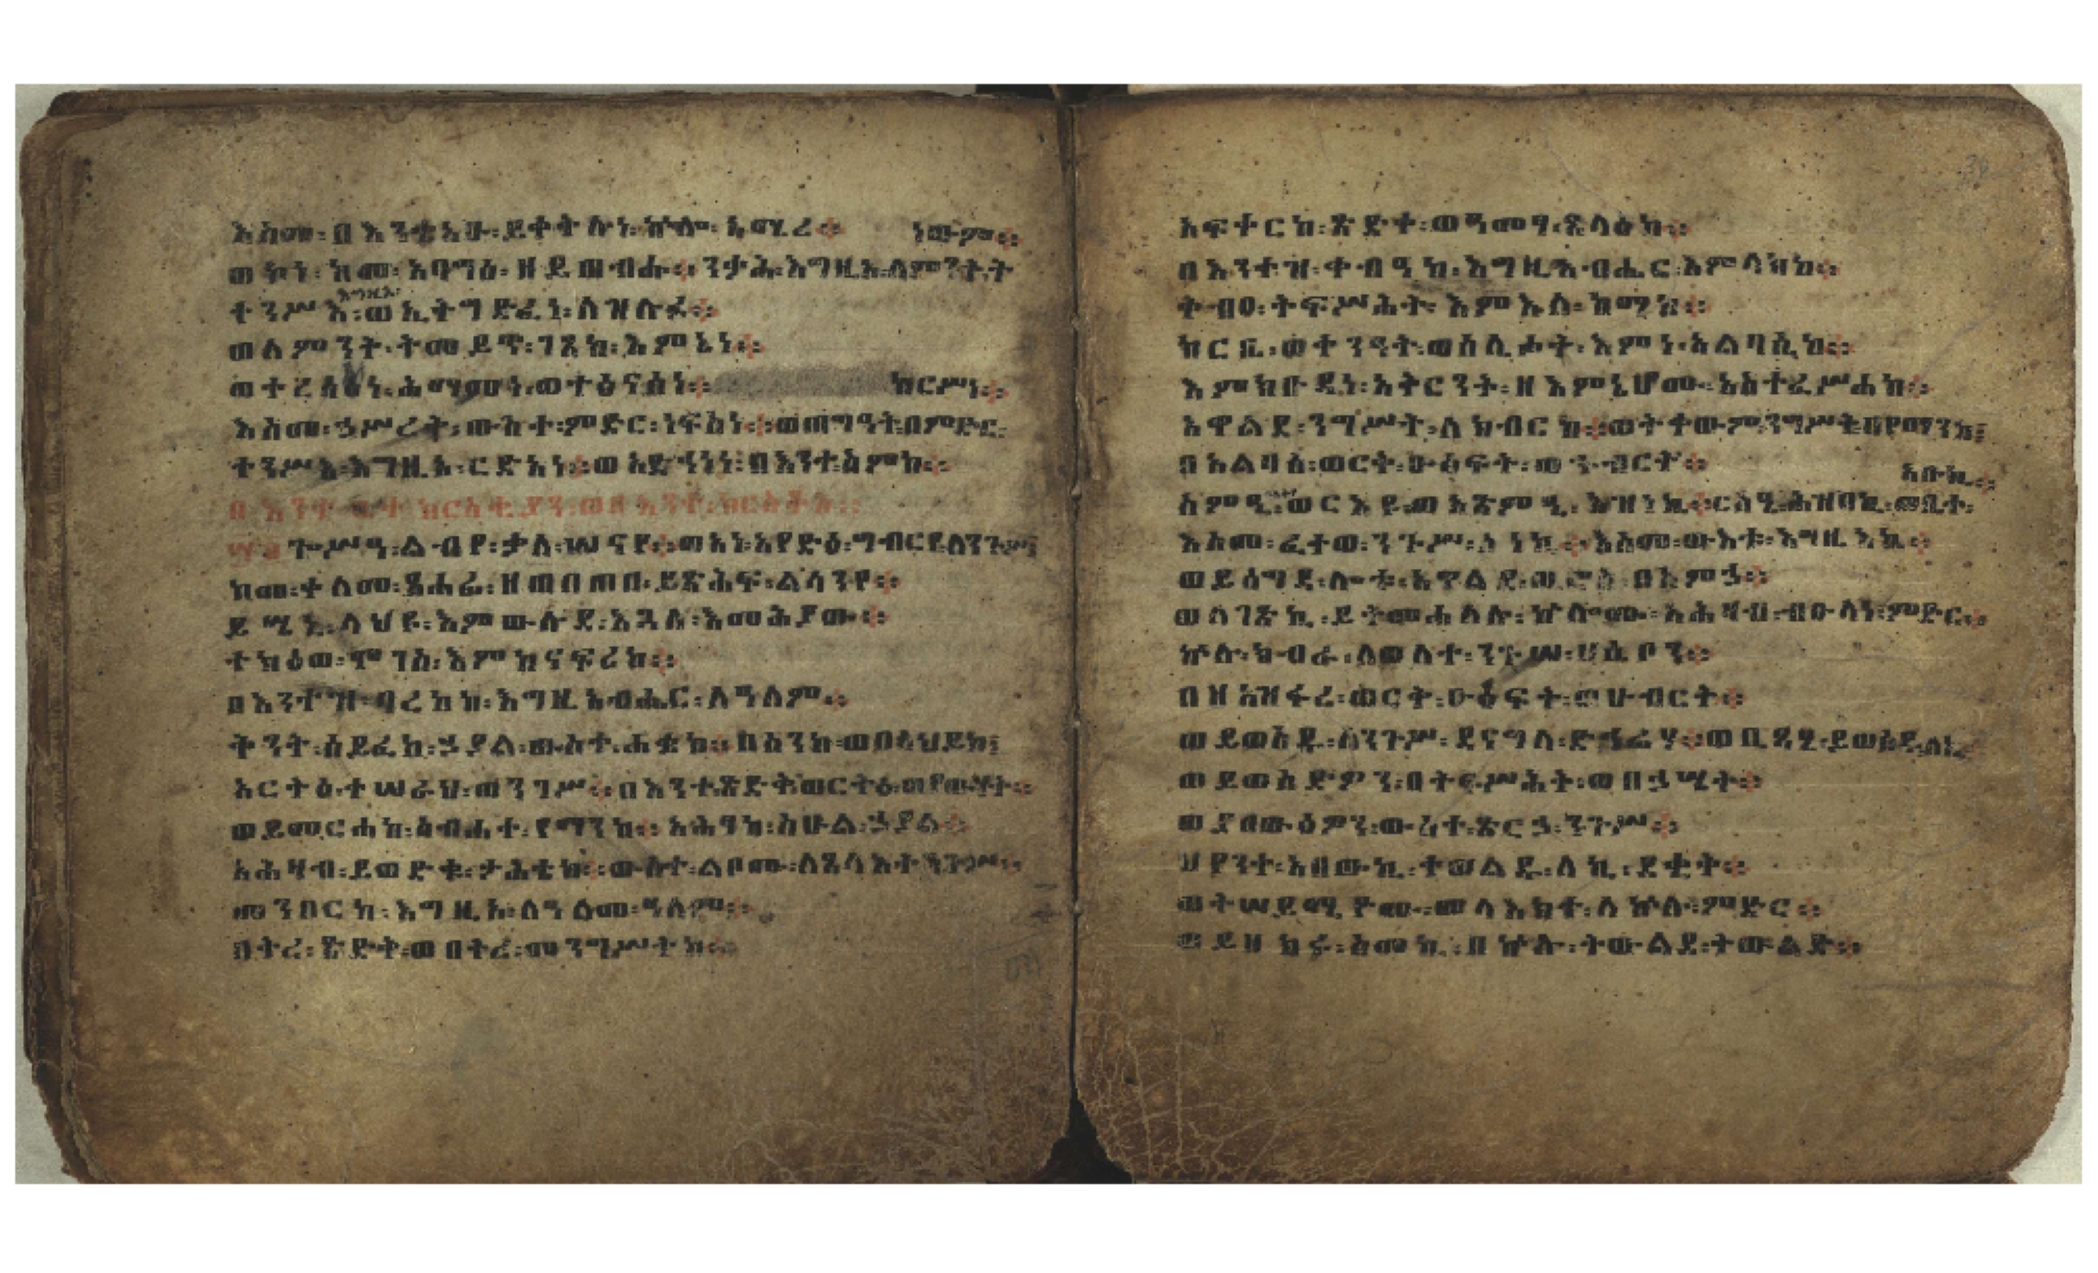 እስመ፡በእንቲአሁ፡ይቀትሉነ፡ኵሎ፡አሚረ፨ ነውም፨
ወኮነ፡ከመ፡አባግዕ፡ዘይጠብሑ፨ንቃሕ፡እግዚኦ፡ለምንት፡ት
እግዚኦ
ተንሥእ፡ወኢትግድፈነ፡ለዝሉፉ፨
ወለምንት፡ትመይጥ፡ገጸከ፡እምኔነ፨
ወተረስዐነ፡ሕማመነ፡ወተፅናስነ፨ ከርሥነ፨
እስመ፡ኃሥረት፡ውስተ፡ምድር፡ነፍስነ፨ወጠግዓት፡በምድር፡
ተንሥእ፡እግዚኦ፡ርድአነ፨ወአድኅነነ፡በእንተ፡ስምከ፨
በእንተ፡ ወበእንተ፡
ጐሥዓ፡ልብየ፡ቃለ፡ሠናየ፨ወአነ፡አየድዕ፡ግብርየ፡ለንጉሥ፤
ከመ፡ቀለመ፡ጸሓፊ፡ዘጠበጠበ፡ይጽሕፍ፡ልሳንየ፨
ይሤኒ፡ላህዩ፡እምውሉደ፡እጓለ፡እመሕያው፨
ተክዕወ፡ሞገስ፡እምከናፍሪከ፨
በእንተዝ፡ባረከከ፡እግዚአብሔር፡ለዓለም፨
ቅንት፡ሰይፈከ፡ኃያል፡ውስተ፡ሐቌከ፨በስንከ፡ወበላህይከ፤
አርትዕ፡ተሠራህ፡ወንገሥ፨በእንተ፡ጽድቅ፡ወርትዕ፡ወየውሃት፨
ወይመርሐከ፡ስብሐተ፡የማንከ፨አሕፃከ፡ስሁል፡ኃያል፨
አሕዛብ፡ይወድቁ፡ታሕቴከ፨ውስተ፡ልቦሙ፡ለጸላእተ፡ንጉሥ፨
መንበርከ፡እግዚኦ፡ለዓለመ፡ዓለም፨
በትረ፡ጽድቅ፡ወበትረ፡መንግሥትከ፨
አፍቀርከ፡ጽድቀ፡ወዓመፃ፡ጸላዕከ፨
በእንተዝ፡ቀብዓከ፡እግዚአብሔር፡አምላክከ፨
ቅብዐ፡ትፍሥሕት፡እምእለ፡ከማከ፨
ከርቤ፡ወቀንዓት፡ወሰሊሖት፡እምነ፡አልባሲከ፨
እምክቡዳነ፡አቅርንት፡ዘእምኔሆሙ፡አስተፈሥሐከ፨
አዋልደ፡ንግሥት፡ለክብርከ፨ወትቀውም፡ንግሥት፡በየማንከ፤
በአልባሰ፡ወርቅ፡ዑፅፍት፡ወኁብርት፨
ስምዒ፡ወርእዪ፡ወአጽምዒ፡እዝነኪ፨ርስዒ፡ሕዝበኪ፡ወቤተ፡ አቡኪ፨
እስመ፡ፈተወ፡ንጉሥ፡ስነኪ፨እስመ፡ውእቱ፡እግዚእኪ፨
ወይሰግዳ፡ሎቱ፡አዋልደ፡ጢሮስ፡በአምኃ፨
ወለገጽኪ፡ይትመሐለሉ፡ኵሎሙ፡አሕዛብ፡ብዑላነ፡ምድር፨
ኵሉ፡ክብራ፡ለወለተ፡ንጉሠ፡ሀሴቦን፨
በዘአዝፋረ፡ወርቅ፡ዑፅፍት፡ወሁብርት፨
ወይወስዳ፡ለንጉሥ፡ደናግለ፡ድኅሬሃ፨ወቢጻሂ፡ይወስዳ፡ለከ
ወይወስድዎን፡በትፍሥሕት፡ወበኃሤት፨
ወያበውዕዎን፡ውስተ፡ጽርኃ፡ንጉሥ፨
ህየንተ፡አበውኪ፡ተወልዱ፡ለኪ፡ደቂቅ፨
ወትሠይሚዮሙ፡መላእክተ፡ለኵሉ፡ምድር፨
ወይዘክሩ፡ስመኪ፡በኵሉ፡ትውልደ፡ትውልድ፨